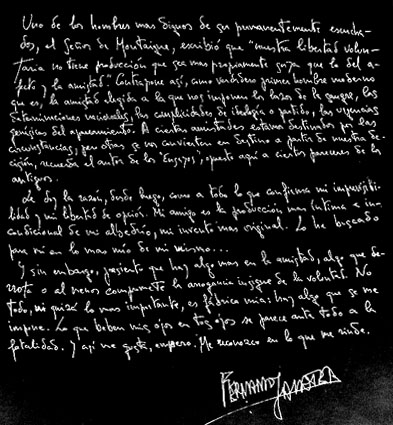 Uno de los hombres mas dignos de ser permanentemente escucha-
dos, el Señor de Montaigne, escribió que "nuestra libertad volun-
taria no tiene producción que sea mas propiamente suya que la del a-
fecto y la amistad." Contrapone así, como verdadero primer hombre moderno
que es, la amistad elegida a la que nos imponen los lazos de la sangre, las
determinaciones nacionales, las complicidades de ideología o partido, las urgencias
genésicas del apareamiento. A ciertas amistades estamos destinados por las
circunstancias, pero otras se nos convierten en destino a partir de nuestra de-
cisión, recuerda el autor de los "Ensayos", opuesto aquí a ciertos pareceres de los
antiguos.
Le doy la razón, desde luego, como a todo lo que confirma mi
y mi libertad de opción. Mi amigo es la producción mas íntima e in-
condicional de mi albedrío, mi invento mas original. Lo he buscado
para mí en lo mas mío de mí mismo...
Y sin embargo, presiento que hay algo mas en la amistad, algo que de-
rrota o al menos compromete la arrogancia insigne de la voluntad. No
todo, ni quizá lo mas importante, es fábrica mía: hay algo que se me
impone. Lo que beben mis ojos en tus ojos se parece ante todo a la
fatalidad. Y así me gusta, empero. Me reconozco en lo que me rinde.
Fernando Savater